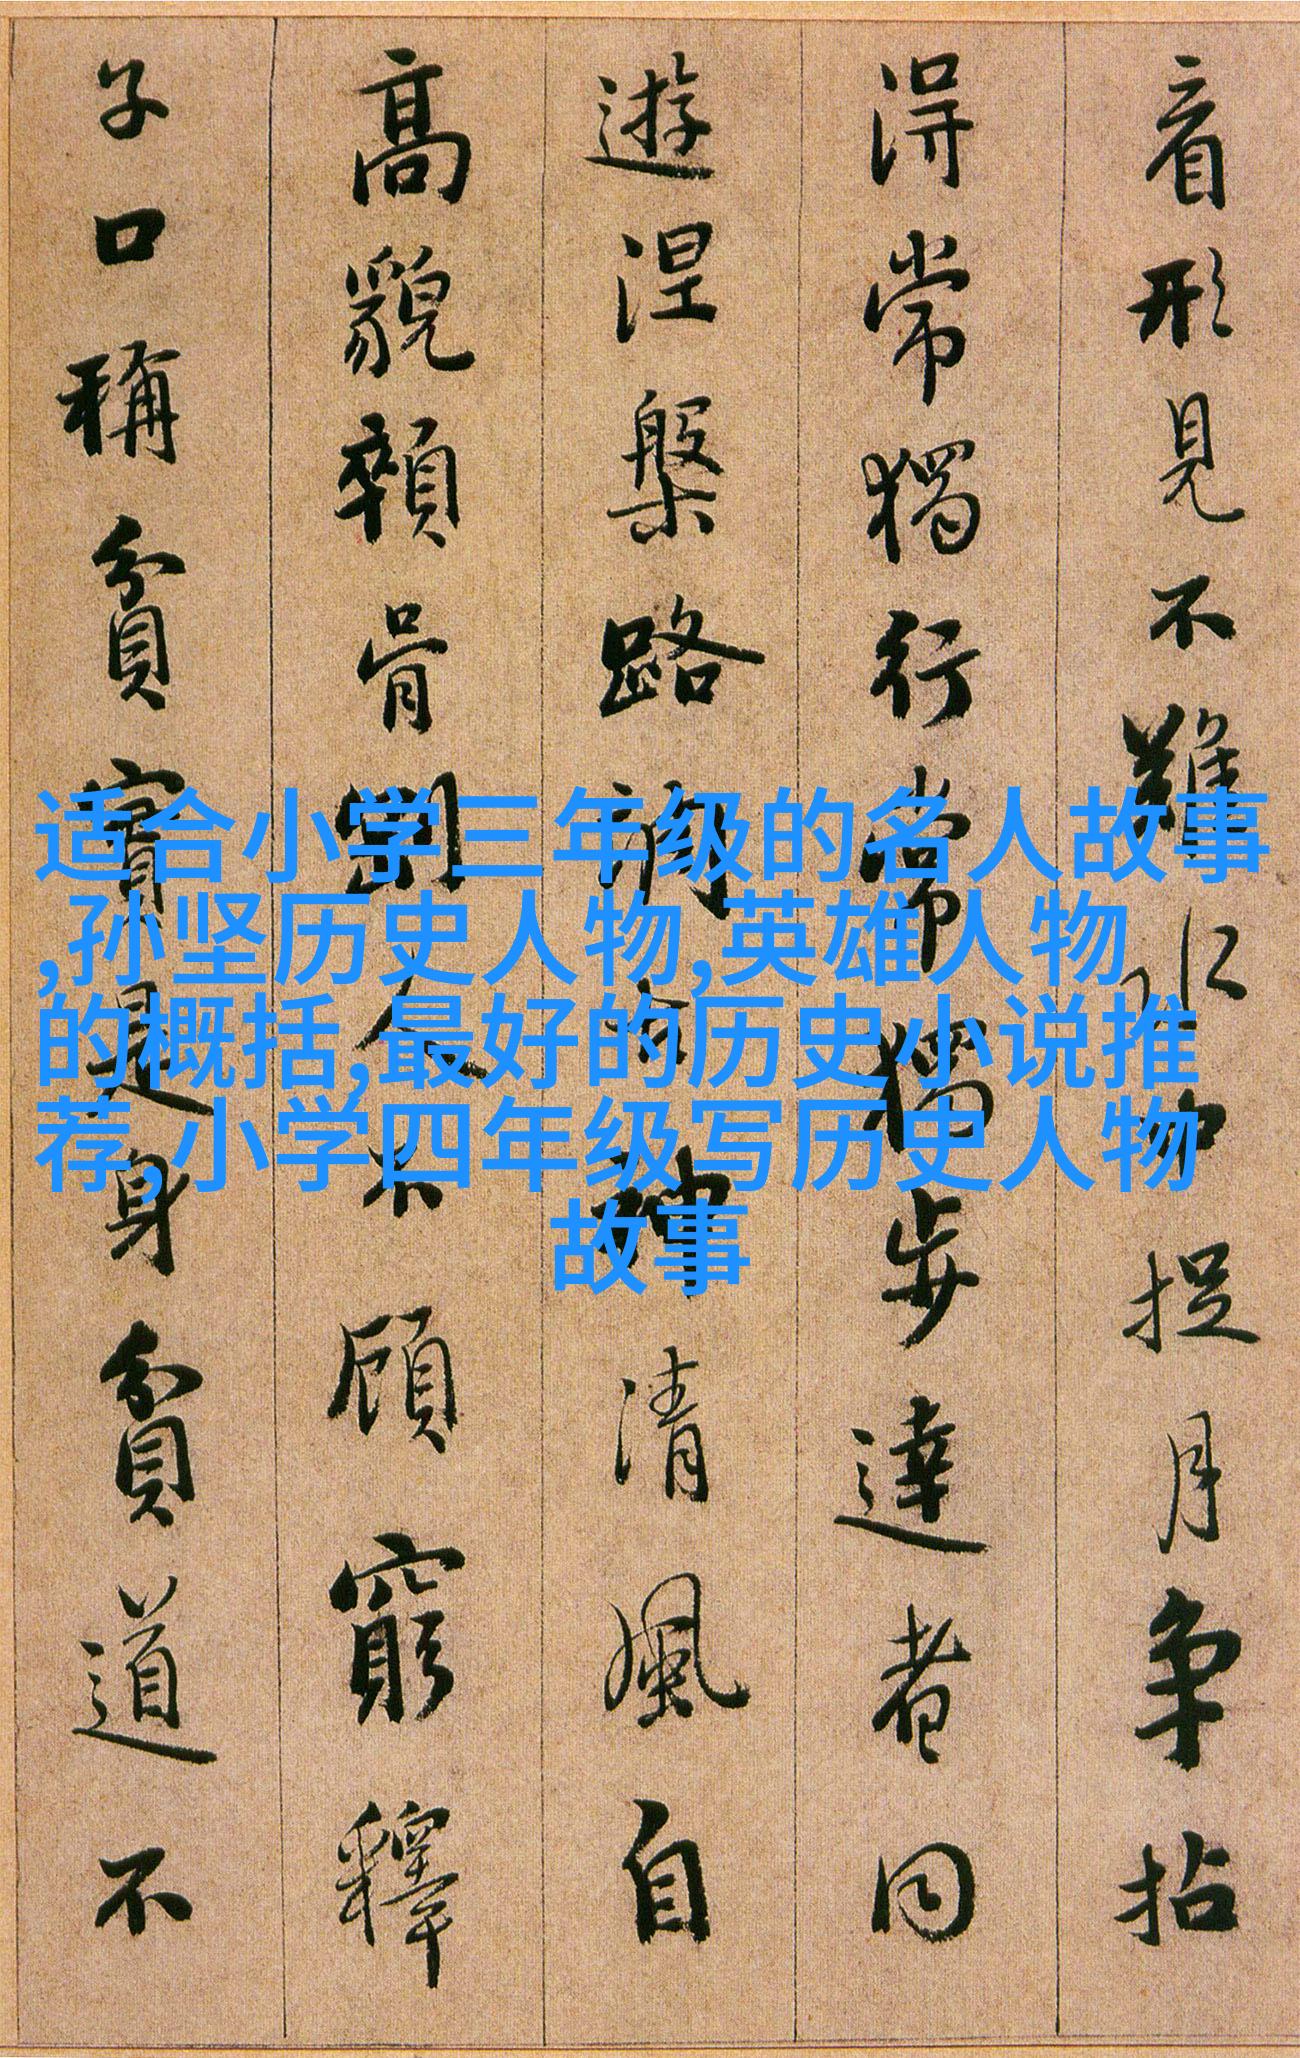 看形見不難水中捉月爭拈
得常獨行常獨步達者同
遊涅槃路調古神清風自
高貌顇骨剛人不顧窮釋
子口稱貧實是身貧道不
适合小学三年级的名人故事
,孙坚历史人物,英雄人物
的概括,最好的历史小说推
荐,小学四年级写历史人物
故事